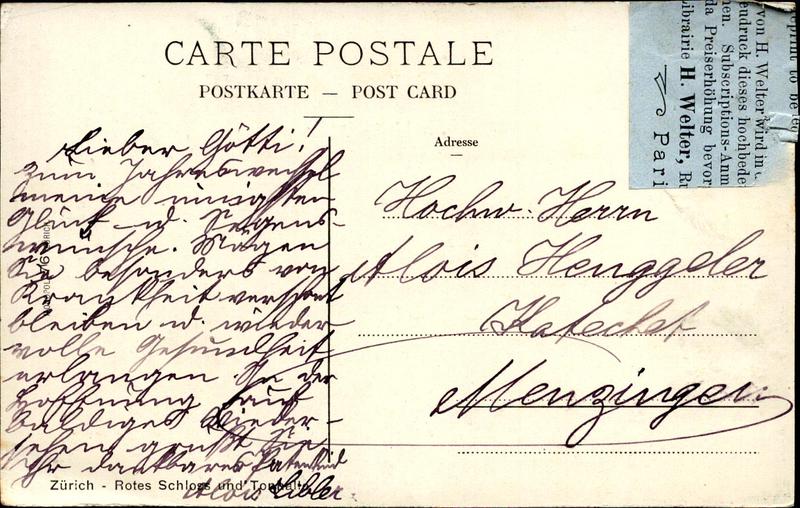 CARTE POSTALE
POSTKARTE — POST CARD
Lieber Götti!
Zum Jahreswechsel
meine innigsten
Glück- u. Segens-
wünsche. Mögen
Sie besonders von
Krankheit verschont
bleiben u. wieder
volle Gesundheit
erlangen. In der
Hoffnung auf
baldiges Wieder-
sehen grüßt Sie
Ihr dankbares Patenkind
Alois
Zürich - Rotes Schloss und Tonhalle
Adresse
Hochw. Herrn
Alois Henggeler
Katechet
Menzingen
to be
von H. Welter wird in
druck dieses hochbede
en. Subscriptions-Anm
da Preiserhöhung bevor
Librairie H. Welter, Ru
Pari